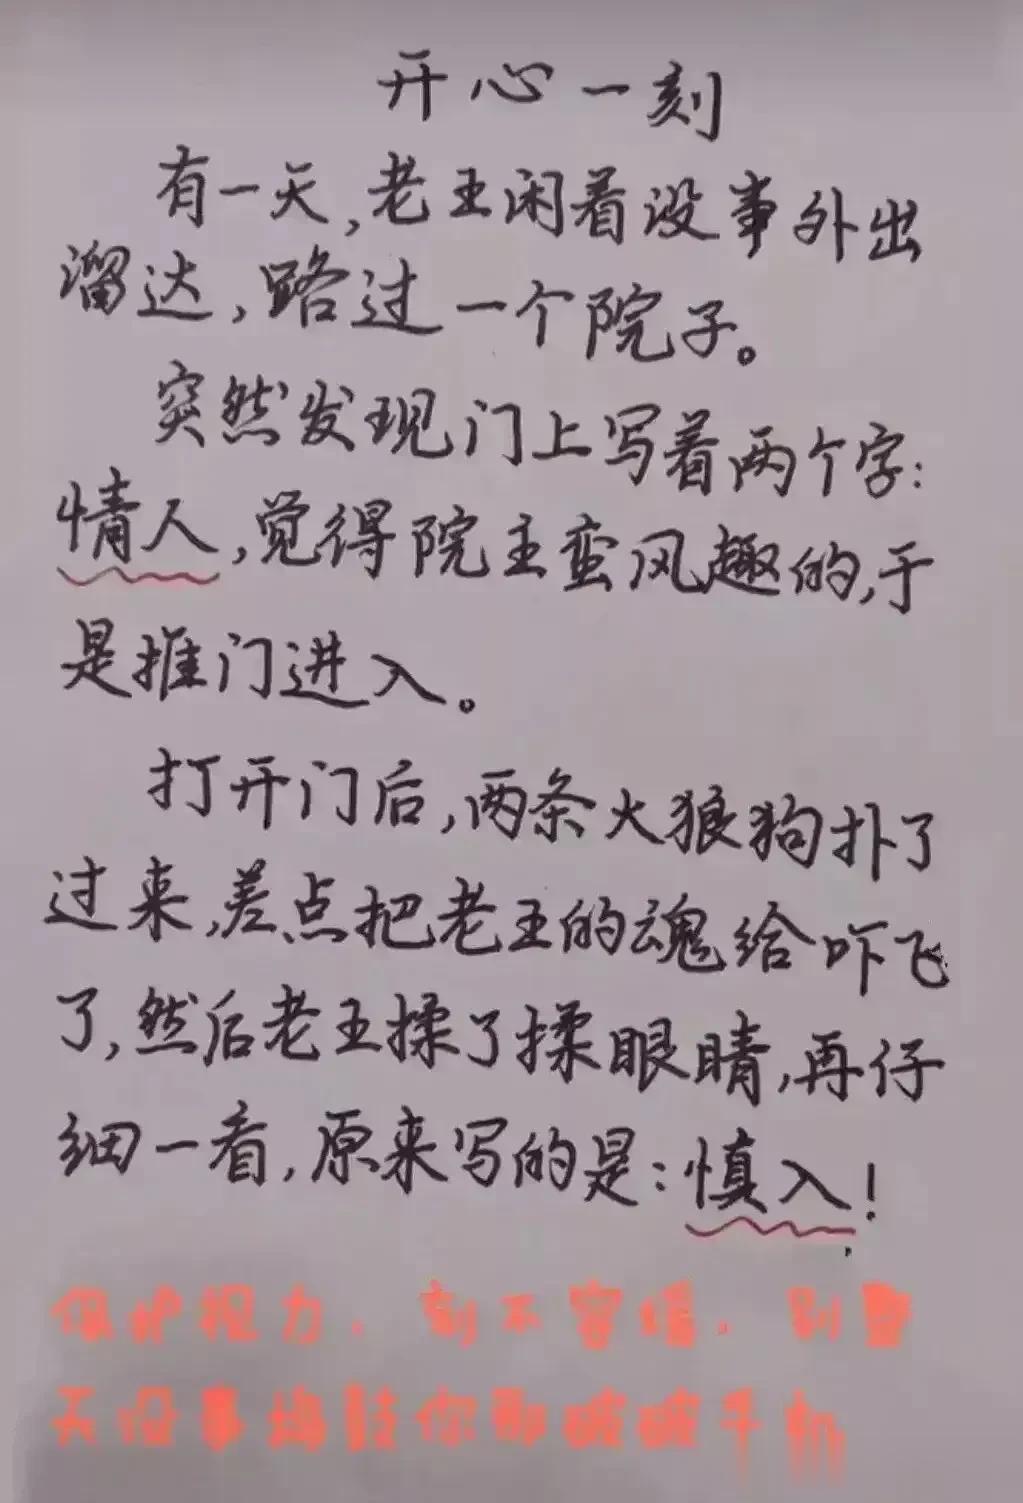 开心一刻
有一天，老王闲着没事外出
溜达，路过一个院子。
突然发现门上写着两个字：
情人，觉得院主蛮风趣的，于
是推门进入。
打开门后，两条大狼狗扑了
过来，差点把老王的魂给吓飞
了，然后老王揉了揉眼睛，再仔
细一看，原来写的是：慎入！
保护视力，刻不容缓，别整
天没事搗鼓你那破破手机